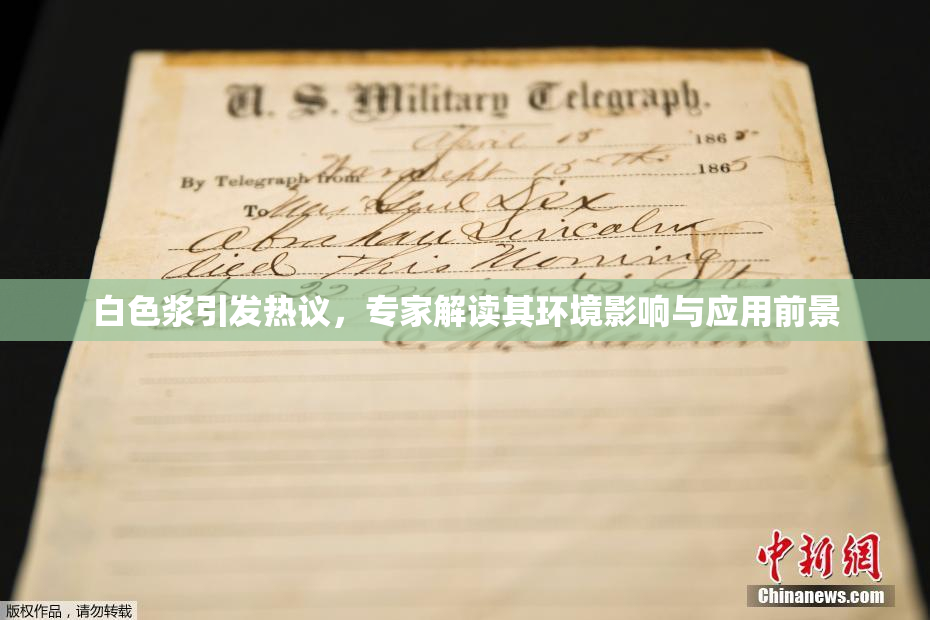 U. S. Military Telegraph.
April 15 1865
By Telegraph from War Dept 15th 1865
To Maj Genl Dix
Abraham Lincoln
died This Morning
at 22 minutes after
白色浆引发热议，专家解读其环境影响与应用前景
中新网
Chinanews.com
版权作品，请勿转载